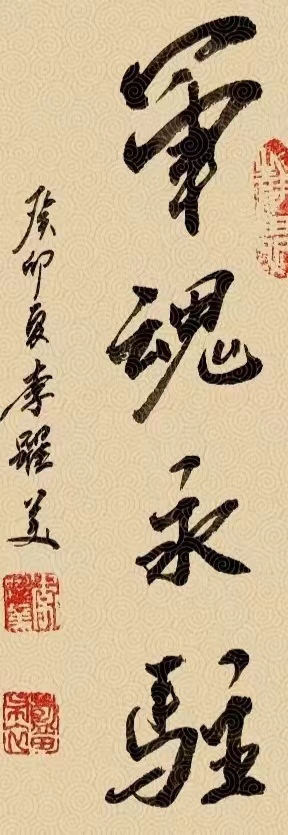 軍魂永駐
癸卯夏李躍美